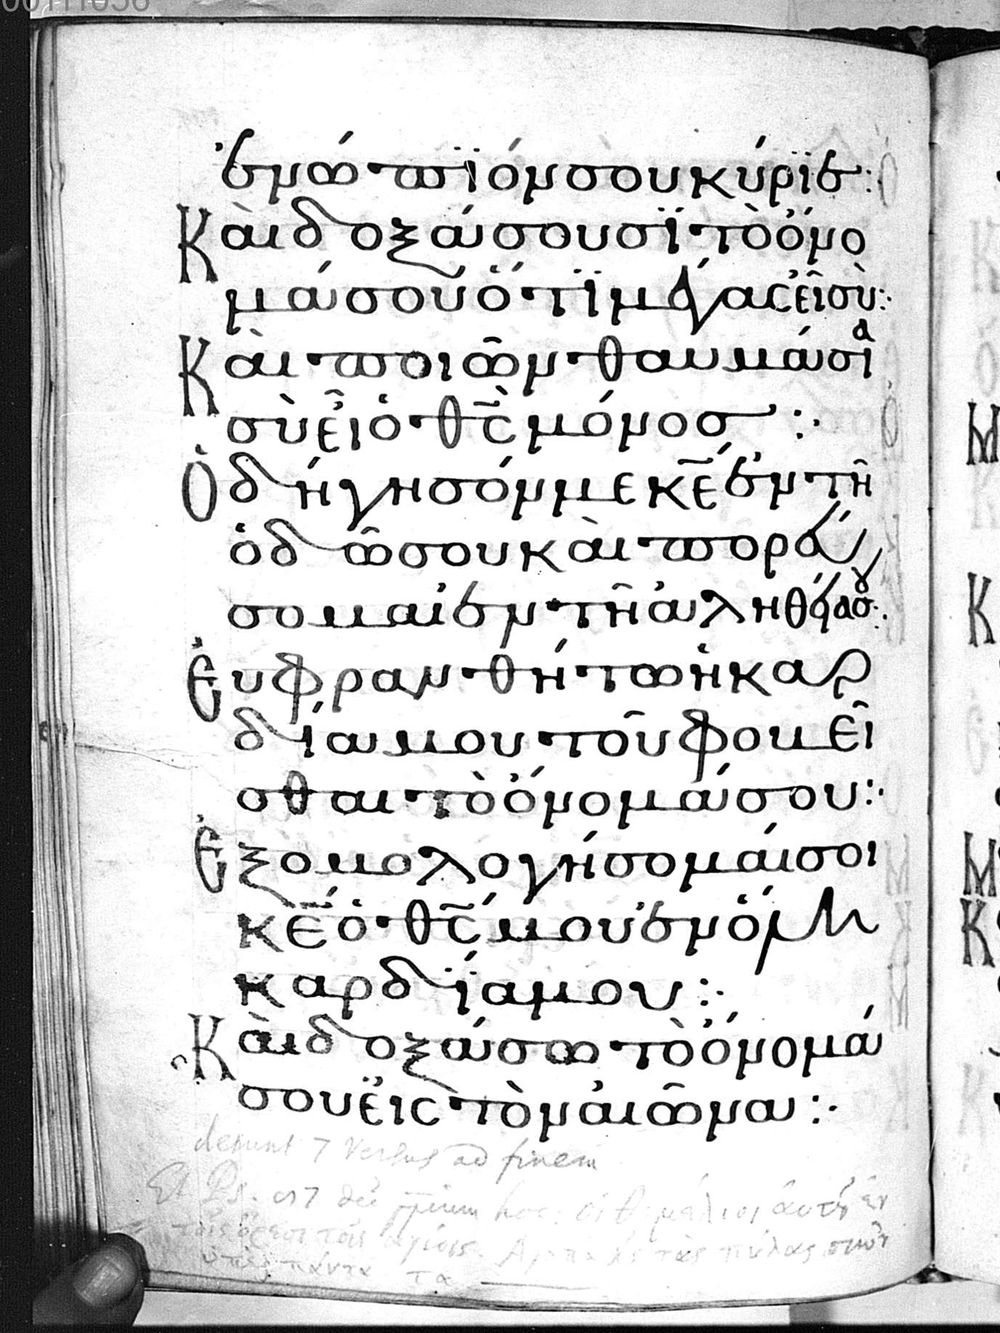 00111056
ἐνώπϊόν σου κύρϊε:
Κὰι δοξάσουσϊ τὸ ὄνο
μά σου ὅτϊ μέγας εἶ σὺ:·
Κὰι ποιῶν θαυμάσια
σὺ εἶ ὁ θ̅ς̅ μόνος :·
Ὁδήγησόν με κ̅ε̅ ἐν τῆ
ὁδῶ σου κὰι πορεύ
σομαι ἐν τῆ ἀληθείᾳ σου:·
Ἐυφρανθήτω ἡ καρ
δία μου τοῦ φοβεῖ
σθαι τὸ ὄνομά σου:·
Ἐξομολογήσομάι σοι
κ̅ε̅ ὁ θ̅ς̅ μου ἐν ὅλη
καρδίᾳ μου:·
Κὰι δοξάσω τὸ ὄνομά
σου ἐις τὸν ἀιῶνα:·
desunt 7 versus ad finem
Et Ps. οἱ θεμέλιοι αὐτοῦ ἐν
τοῖς ὄρεσι τοῖς ἁγίοις. Ἀγαπᾷ τὰς πύλας σιὼν
ὑπὲρ πάντα τα